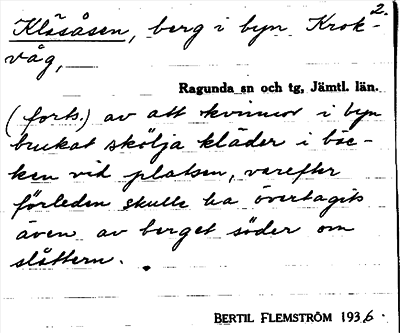 2.
Kläsåsen, berg i byn Krok-
våg,
Ragunda sn och tg, Jämtl. län.
(forts.) av att kvinnor i byn
brukat skölja kläder i bäc-
ken vid platsen, varefter
förleden skulle ha övertagits
även av berget söder om
slåttern.
BERTIL FLEMSTRÖM 1936.